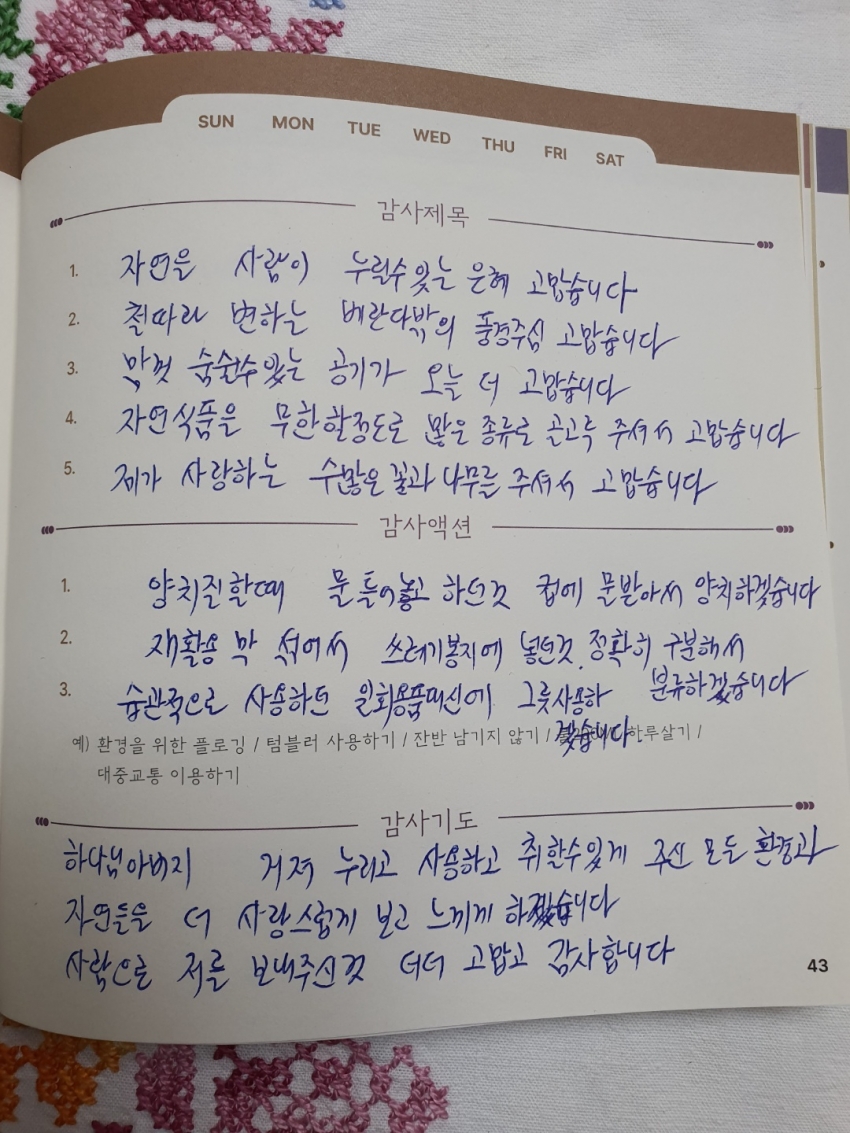 SUN MON TUE WED THU FRI SAT
감사제목
1. 자연을 사람이 누릴수 있는 은혜 고맙습니다
2. 철따라 변하는 베란다밖의 풍경주심 고맙습니다
3. 맘껏 숨쉴수 있는 공기가 오늘 더 고맙습니다
4. 자연식품을 무한할정도로 많은 종류로 골고루 주셔서 고맙습니다
5. 제가 사랑하는 수많은 꽃과 나무를 주셔서 고맙습니다
감사액션
1. 양치질할때 물 틀어놓고 하던것 컵에 물받아서 양치하겠습니다
2. 재활용 막 섞어서 쓰레기봉지에 넣던것 정확히 구분해서
분류하겠습니다
3. 습관적으로 사용하던 일회용품대신에 그릇사용하
겠습니다.
예) 환경을 위한 플로깅 / 텀블러 사용하기 / 잔반 남기지 않기 / 하루살기 /
대중교통 이용하기
감사기도
하나님아버지 거저 누리고 사용하고 취할수있게 주신 모든 환경과
자연들을 더 사랑스럽게 보고 느끼게 하겠습니다
사람으로 저를 보내주신것 더더 고맙고 감사합니다
43